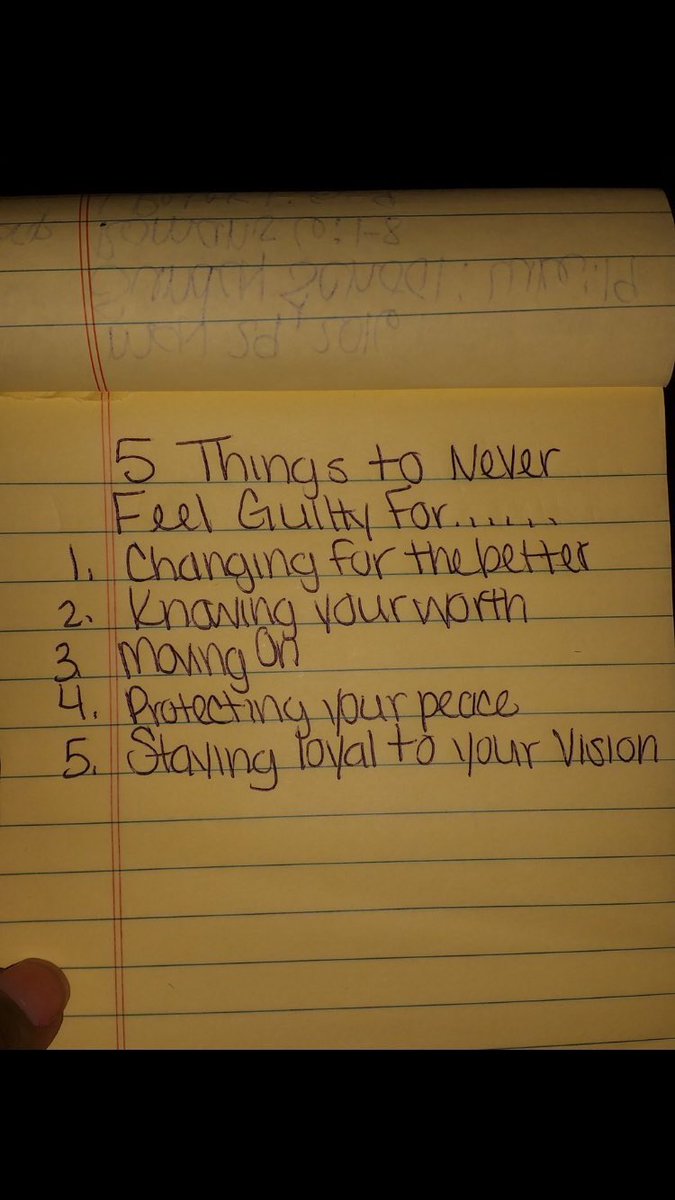 5 Things to Never
Feel Guilty For.......
1. Changing for the better
2. Knowing your worth
3. Moving On
4. Protecting your peace
5. Staying loyal to your Vision